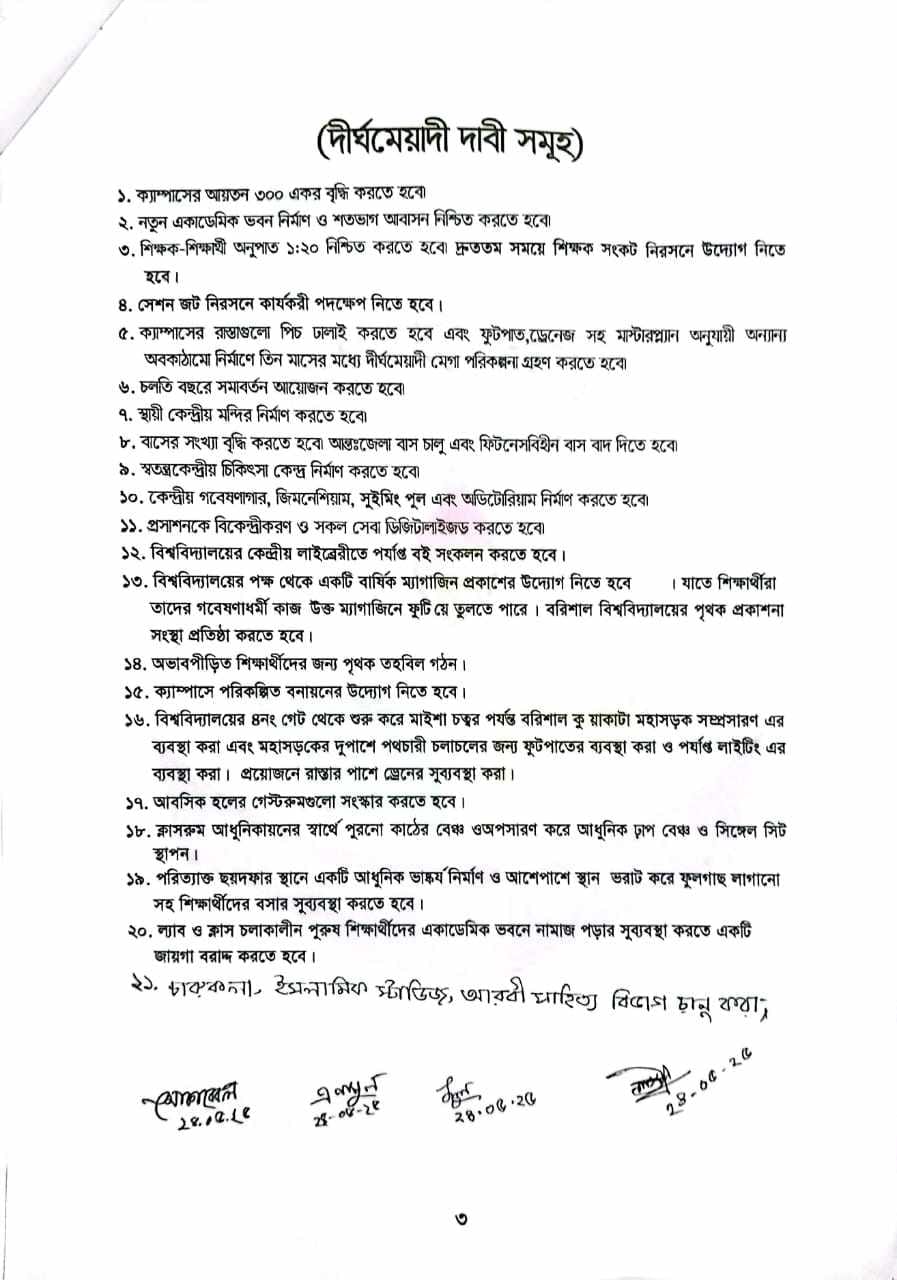 (দীর্ঘমেয়াদী দাবী সমূহ)
১. ক্যাম্পাসের আয়তন ৩০০ একর বৃদ্ধি করতে হবে।
২. নতুন একাডেমিক ভবন নির্মাণ ও শতভাগ আবাসন নিশ্চিত করতে হবে।
৩. শিক্ষক-শিক্ষার্থী অনুপাত ১:২০ নিশ্চিত করতে হবে। দ্রুততম সময়ে শিক্ষক সংকট নিরসনে উদ্যোগ নিতে
হবে।
৪. সেশন জট নিরসনে কার্যকরী পদক্ষেপ নিতে হবে।
৫. ক্যাম্পাসের রাস্তাগুলো পিচ ঢালাই করতে হবে এবং ফুটপাত,ড্রেনেজ সহ মাস্টারপ্ল্যান অনুযায়ী অন্যান্য
অবকাঠামো নির্মাণে তিন মাসের মধ্যে দীর্ঘমেয়াদী মেগা পরিকল্পনা গ্রহণ করতে হবে।
৬. চলতি বছরে সমাবর্তন আয়োজন করতে হবে।
৭. স্থায়ী কেন্দ্রীয় মন্দির নির্মাণ করতে হবে।
৮. বাসের সংখ্যা বৃদ্ধি করতে হবে। আন্তঃজেলা বাস চালু এবং ফিটনেসবিহীন বাস বাদ দিতে হবে।
৯. স্বতন্ত্রকেন্দ্রীয় চিকিৎসা কেন্দ্র নির্মাণ করতে হবে।
১০. কেন্দ্রীয় গবেষণাগার, জিমনেশিয়াম, সুইমিং পুল এবং অডিটোরিয়াম নির্মাণ করতে হবে।
১১. প্রসাশনকে বিকেন্দ্রীকরণ ও সকল সেবা ডিজিটালাইজড করতে হবে।
১২. বিশ্ববিদ্যালয়ের কেন্দ্রীয় লাইব্রেরীতে পর্যাপ্ত বই সংকলন করতে হবে।
১৩. বিশ্ববিদ্যালয়ের পক্ষ থেকে একটি বার্ষিক ম্যাগাজিন প্রকাশের উদ্যোগ নিতে হবে । যাতে শিক্ষার্থীরা
তাদের গবেষণাধর্মী কাজ উক্ত ম্যাগাজিনে ফুটি য়ে তুলতে পারে । বরিশাল বিশ্ববিদ্যালয়ের পৃথক প্রকাশনা
সংস্থা প্রতিষ্ঠা করতে হবে।
১৪. অভাবপীড়িত শিক্ষার্থীদের জন্য পৃথক তহবিল গঠন।
১৫. ক্যাম্পাসে পরিকল্পিত বনায়নের উদ্যোগ নিতে হবে।
১৬. বিশ্ববিদ্যালয়ের ৪নং গেট থেকে শুরু করে মাইশা চত্বর পর্যন্ত বরিশাল কু য়াকাটা মহাসড়ক সম্প্রসারণ এর
ব্যবস্থা করা এবং মহাসড়কের দুপাশে পথচারী চলাচলের জন্য ফুটপাতের ব্যবস্থা করা ও পর্যাপ্ত লাইটিং এর
ব্যবস্থা করা। প্রয়োজনে রাস্তার পাশে ড্রেনের সুব্যবস্থা করা।
১৭. আবসিক হলের গেস্টরুমগুলো সংস্কার করতে হবে।
১৮. ক্লাসরুম আধুনিকায়নের স্বার্থে পুরনো কাঠের বেঞ্চ ওঅপসারণ করে আধুনিক ঢ়াপ বেঞ্চ ও সিঙ্গেল সিট
স্থাপন।
১৯. পরিত্যাক্ত ছয়দফার স্থানে একটি আধুনিক ভাষ্কর্য নির্মাণ ও আশেপাশে স্থান ভরাট করে ফুলগাছ লাগানো
সহ শিক্ষার্থীদের বসার সুব্যবস্থা করতে হবে।
২০. ল্যাব ও ক্লাস চলাকালীন পুরুষ শিক্ষার্থীদের একাডেমিক ভবনে নামাজ পড়ার সুব্যবস্থা করতে একটি
জায়গা বরাদ্দ করতে হবে।
২১. চারুকলা, ইসলামিক স্টাডিজ, আরবী সাহিত্য বিভাগ চালু করা;
২৪.০৫.২৫
২৪-০৫-২৫
২৪.০৫.২৫
২৪.০৫.২৫
৩